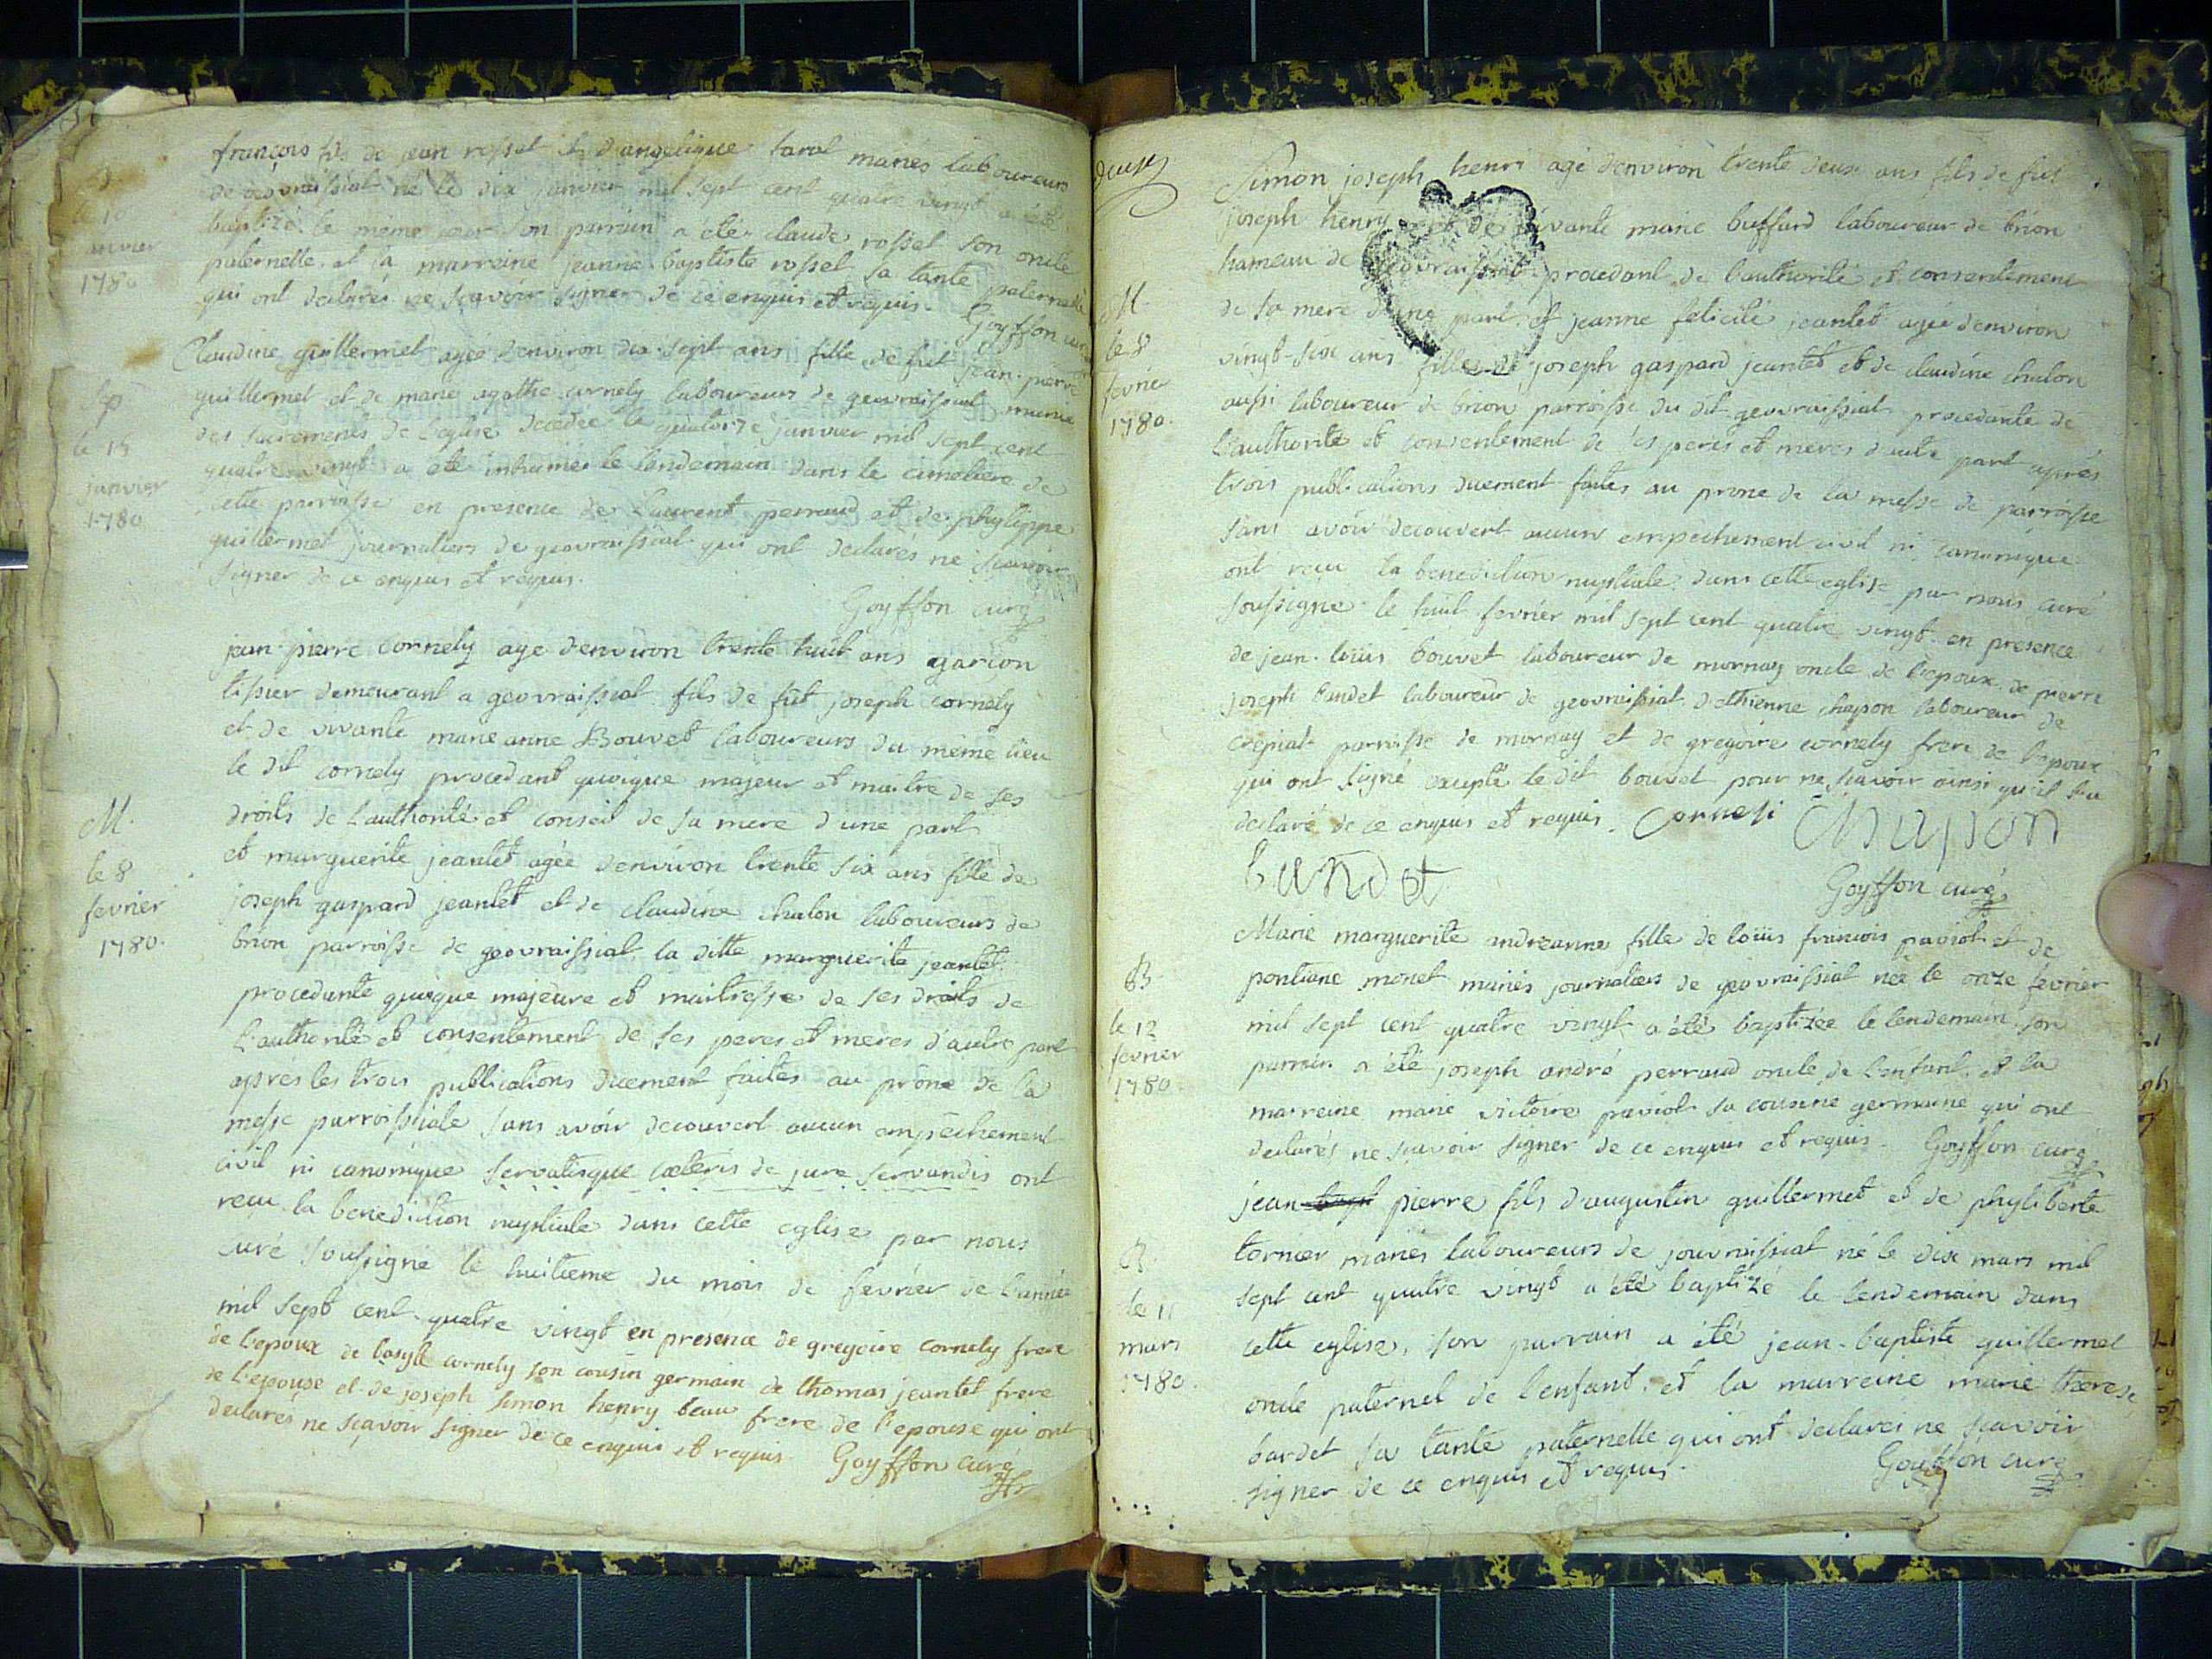 B
le 10
janvier
1780
françois fils de jean rossel et d'angelique tarol mariés laboureurs
de geovraissiat né le dix janvier mil sept cent quatre vingt a été
baptizé le même jour son parrain a été claude rossel son oncle
paternelle et sa marreine jeanne baptiste rossel sa tante paternelle
qui ont declarés ne scavoir signer de ce enquis et requis. Goyffon curé
Sep
le 15
janvier
1780
Claudine guillermet agée d'environ dix-sept ans fille de fut jean-pierre
guillermet et de marie agathe cornely laboureurs de geovraissiat munie
des sacrements de l'eglise decedée le quatorze janvier mil sept cent
quatre vingt a été inhumée le landemain dans le cimetiere de
cette parroisse en presence de Laurent perraud et de phylippe
guillermet journaliers de geovraissiat qui ont declarés ne scavoir
signer de ce enquis et requis.
Goyffon curé
M.
le 8
fevrier
1780.
jean-pierre cornely age d'environ trente huit ans garcon
tissier demeurant a geovraissiat fils de fût joseph cornely
et de vivante marie anne Bouvet laboureurs du même lieu
le dit cornely procedant quoique majeur et maitre de ses
droits de l'authorité et conseil de sa mere d'une part
et marguerite jeantet agée d'environ trente six ans fille de
joseph gaspard jeantet et de claudine chalon laboureurs de
brion parroisse de geovraissiat la ditte marguerite jeantet
procedante quoique majeure et maitresse de ses droits de
L'authorité et consentement de ses peres et meres d'autre part
apres les trois publications duement faites au prône de la
messe parroissiale sans avoir decouvert aucun empêchement
civil ni canonique servatisque cæteris de jure servandis ont
recu la benediction nuptiale dans cette eglise par nous
curé soussigné le huitieme du mois de fevrier de l'année
mil sept cent quatre vingt en presence de gregoire cornely frere
de l'epoux de basyle cornely son cousin germain de thomas jeantet frere
de l'epouse et de joseph simon henry beau frere de l'epouse qui ont
declarés ne sçavoir signer de ce enquis et requis Goyffon curé
deux
M
le 8
fevrier
1780.
Simon joseph henri agé d'environ trente deux ans fils de fut
joseph henry et de vivante marie buffard laboureur de brion
hameau de geovraissiat procedant de l'authorité et consentement
de sa mere d'une part et jeanne felicité jeantet agée d'environ
vingt-six ans fille de joseph gaspard jeantet et de claudine chalon
aussi laboureur de brion parroisse du dit geovraissiat procedante de
L'authorité et consentement de ses peres et meres d'autre part après
trois publications duement faites au prone de la messe de parroisse
sans avoir decouvert aucun empechement civil ni canonique
ont recu la benediction nuptiale dans cette eglise par nous curé
soussigne le huit fevrier mil sept cent quatre vingt en presence
de jean-loüis bouvet laboureur de mornay oncle de l'epoux de pierre
joseph bandet laboureur de geovraissiat d'ethienne chapon laboureur de
crepiat parroisse de mornay et de gregoire cornely frere de l'epoux
qui ont signé excepté le dit bouvet pour ne scavoir ainsi qu'il l'a
declaré de ce enquis et requis. Cornesi Chapon
bandet
Goyffon curé
B
le 12
fevrier
1780
Marie marguerite andreanne fille de loüis francois paviot et de
pontiane monet mariés journaliers de geovraissiat née le onze fevrier
mil sept cent quatre vingt a été baptizée le lendemain son
parrain a été joseph andré perraud oncle de l'enfant et la
marreine marie victoire paviot sa cousine germaine qui ont
declarés ne scavoir signer de ce enquis et requis. Goyffon curé
B.
le 11
mars
1780.
jean bapt pierre fils d'augustin guillermet et de phyliberte
tornier mariés laboureurs de jouvraissiat né le dix mars mil
sept cent quatre vingt a été baptizé le lendemain dans
cette eglise, son parrain a été jean-baptiste guillermet
oncle paternel de l'enfant et la marreine marie therese
bardet sa tante paternelle qui ont declarés ne scavoir
signer de ce enquis et requis. Goyffon curé